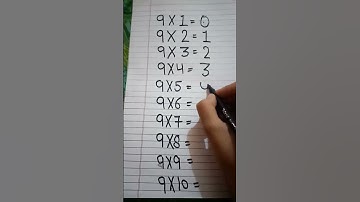 9X1=0
9X2=1
9X3=2
9X4=3
9X5=4
9X6=
9X7=
9X8=
9X9=
9X10=